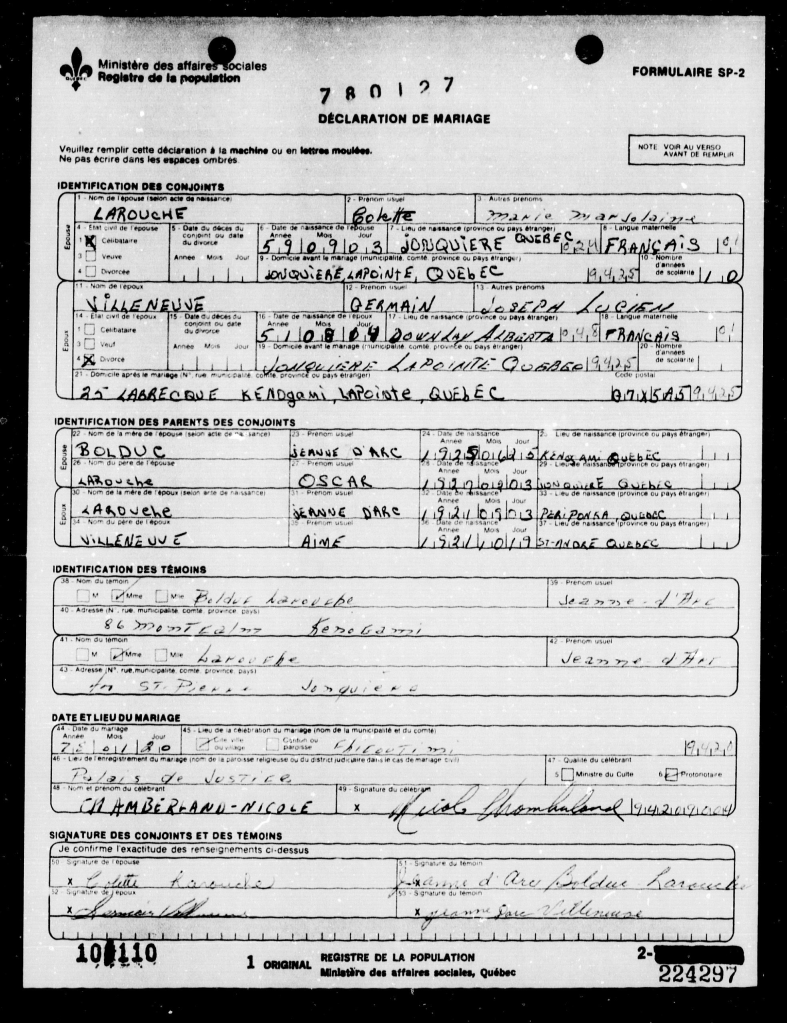 Ministère des affaires sociales
Registre de la population
FORMULAIRE SP-2
780127
DÉCLARATION DE MARIAGE
Veuillez remplir cette déclaration à la machine ou en lettres moulées.
Ne pas écrire dans les espaces ombrés.
NOTE VOIR AU VERSO
AVANT DE REMPLIR
IDENTIFICATION DES CONJOINTS
Épouse
1 - Nom de l'épouse (selon acte de naissance) 2 - Prénom usuel 3 - Autres prénoms
LAROUCHE Colette Marie Marjolaine
4 - État civil de l'épouse 5 - Date du décès du conjoint ou date du divorce 6 - Date de naissance de l'épouse 7 - Lieu de naissance (province ou pays étranger) 8 - Langue maternelle
1 X Célibataire Année Mois Jour 590903 JONQUIERE QUEBEC 024 FRANÇAIS 01
3 Veuve Année Mois Jour 9 - Domicile avant le mariage (municipalité, comté, province ou pays étranger) 10 - Nombre d'années de scolarité
4 Divorcée JONQUIERE, LAPOINTE, QUEBEC 9425 10
Époux
11 - Nom de l'époux 12 - Prénom usuel 13 - Autres prénoms
VILLENEUVE GERMAIN JOSEPH LUCIEN
14 - État civil de l'époux 15 - Date du décès du conjoint ou date du divorce 16 - Date de naissance de l'époux 17 - Lieu de naissance (province ou pays étranger) 18 - Langue maternelle
1 Célibataire Année Mois Jour 510804 ALBERTA 048 FRANÇAIS 01
3 Veuf Année Mois Jour 19 - Domicile avant le mariage (municipalité, comté, province ou pays étranger) 20 - Nombre d'années de scolarité
4 X Divorcé JONQUIERE LAPOINTE QUEBEC 9425
21 - Domicile après le mariage (N°, rue, municipalité, comté, province ou pays étranger) Code postal
25 LABRECQUE KENOgami, LAPointe, QUEBEC G7X5A5 9425
IDENTIFICATION DES PARENTS DES CONJOINTS
Épouse
22 - Nom de la mère de l'épouse (selon acte de naissance) 23 - Prénom usuel 24 - Date de naissance 25 - Lieu de naissance (province ou pays étranger)
BOLDUC JEANNE D'ARC Année Mois Jour 19250625 KENOGAMI QUEBEC
26 - Nom du père de l'épouse 27 - Prénom usuel 28 - Date de naissance 29 - Lieu de naissance (province ou pays étranger)
LARouche OSCAR Année Mois Jour JONQUIERE QUEBEC
Époux
30 - Nom de la mère de l'époux (selon acte de naissance) 31 - Prénom usuel 32 - Date de naissance 33 - Lieu de naissance (province ou pays étranger)
LARouche JEANNE D'ARC Année Mois Jour QUEBEC
34 - Nom du père de l'époux 35 - Prénom usuel 36 - Date de naissance 37 - Lieu de naissance (province ou pays étranger)
VILLENEUVE AIME 19211019 ST-ANDRÉ QUEBEC
IDENTIFICATION DES TÉMOINS
38 - Nom du témoin 39 - Prénom usuel
M Mme Mlle Bolduc Larouche Jeanne-d'Arc
40 - Adresse (N°, rue, municipalité, comté, province, pays)
86 Montcalm Kenogami
41 - Nom du témoin 42 - Prénom usuel
M Mme Mlle Larouche Jeanne-d'Arc
43 - Adresse (N°, rue, municipalité, comté, province, pays)
St-Pierre Jonquière
DATE ET LIEU DU MARIAGE
44 - Date du mariage 45 - Lieu de la célébration du mariage (nom de la municipalité et du comté)
Année Mois Jour 780120 Cité ville ou village Canton ou paroisse Chicoutimi 9420
46 - Lieu de l'enregistrement du mariage (nom de la paroisse religieuse ou du district judiciaire dans le cas de mariage civil) 47 - Qualité du célébrant
Palais de Justice 5 Ministre du Culte 6 Protonotaire
48 - Nom et prénom du célébrant 49 - Signature du célébrant
CHAMBERLAND-NICOLE x Nicole Chamberland 94209004
SIGNATURE DES CONJOINTS ET DES TÉMOINS
Je confirme l'exactitude des renseignements ci-dessus
50 - Signature de l'épouse 51 - Signature du témoin
x Colette Larouche x Jeanne d'Arc Bolduc Larouche
52 - Signature de l'époux 53 - Signature du témoin
x x Jeanne Villeneuve
110
1 ORIGINAL
REGISTRE DE LA POPULATION
Ministère des affaires sociales, Québec
2-
224297